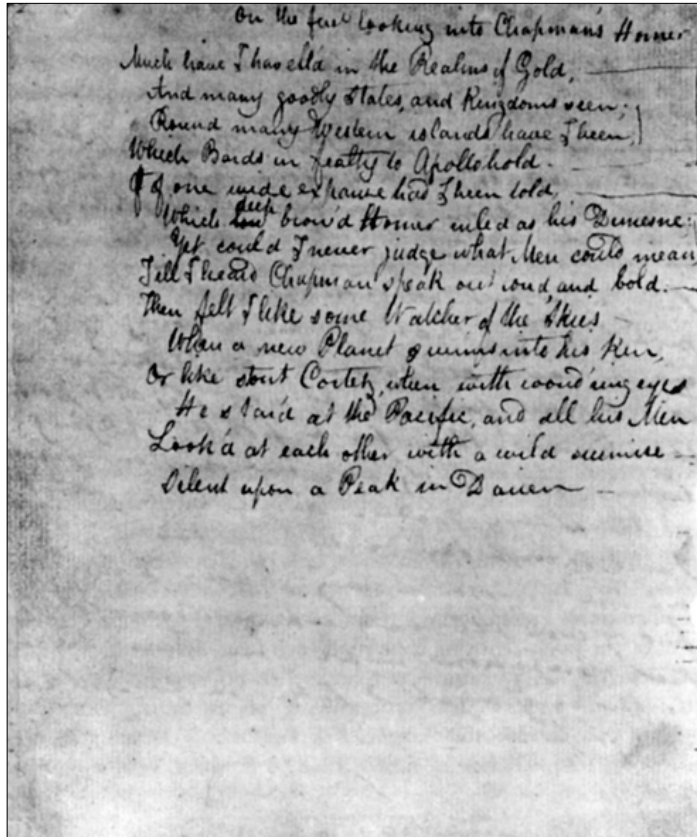 On the first looking into Chapman's Homer
Much have I travell'd in the Realms of Gold,
And many goodly States, and Kingdoms seen;
Round many Western islands have I been,
Which Bards in fealty to Apollo hold.
Of one wide expanse had I been told,
Which low deep brow'd Homer ruled as his Demesne:
Yet could I never judge what Men could mean,
Till I heard Chapman speak out loud, and bold.
Then felt I like some Watcher of the Skies
When a new Planet swims into his Ken,
Or like stout Cortez, when with wond'ring eyes
He star'd at the Pacific, and all his Men
Look'd at each other with a wild surmise
Silent upon a Peak in Darien